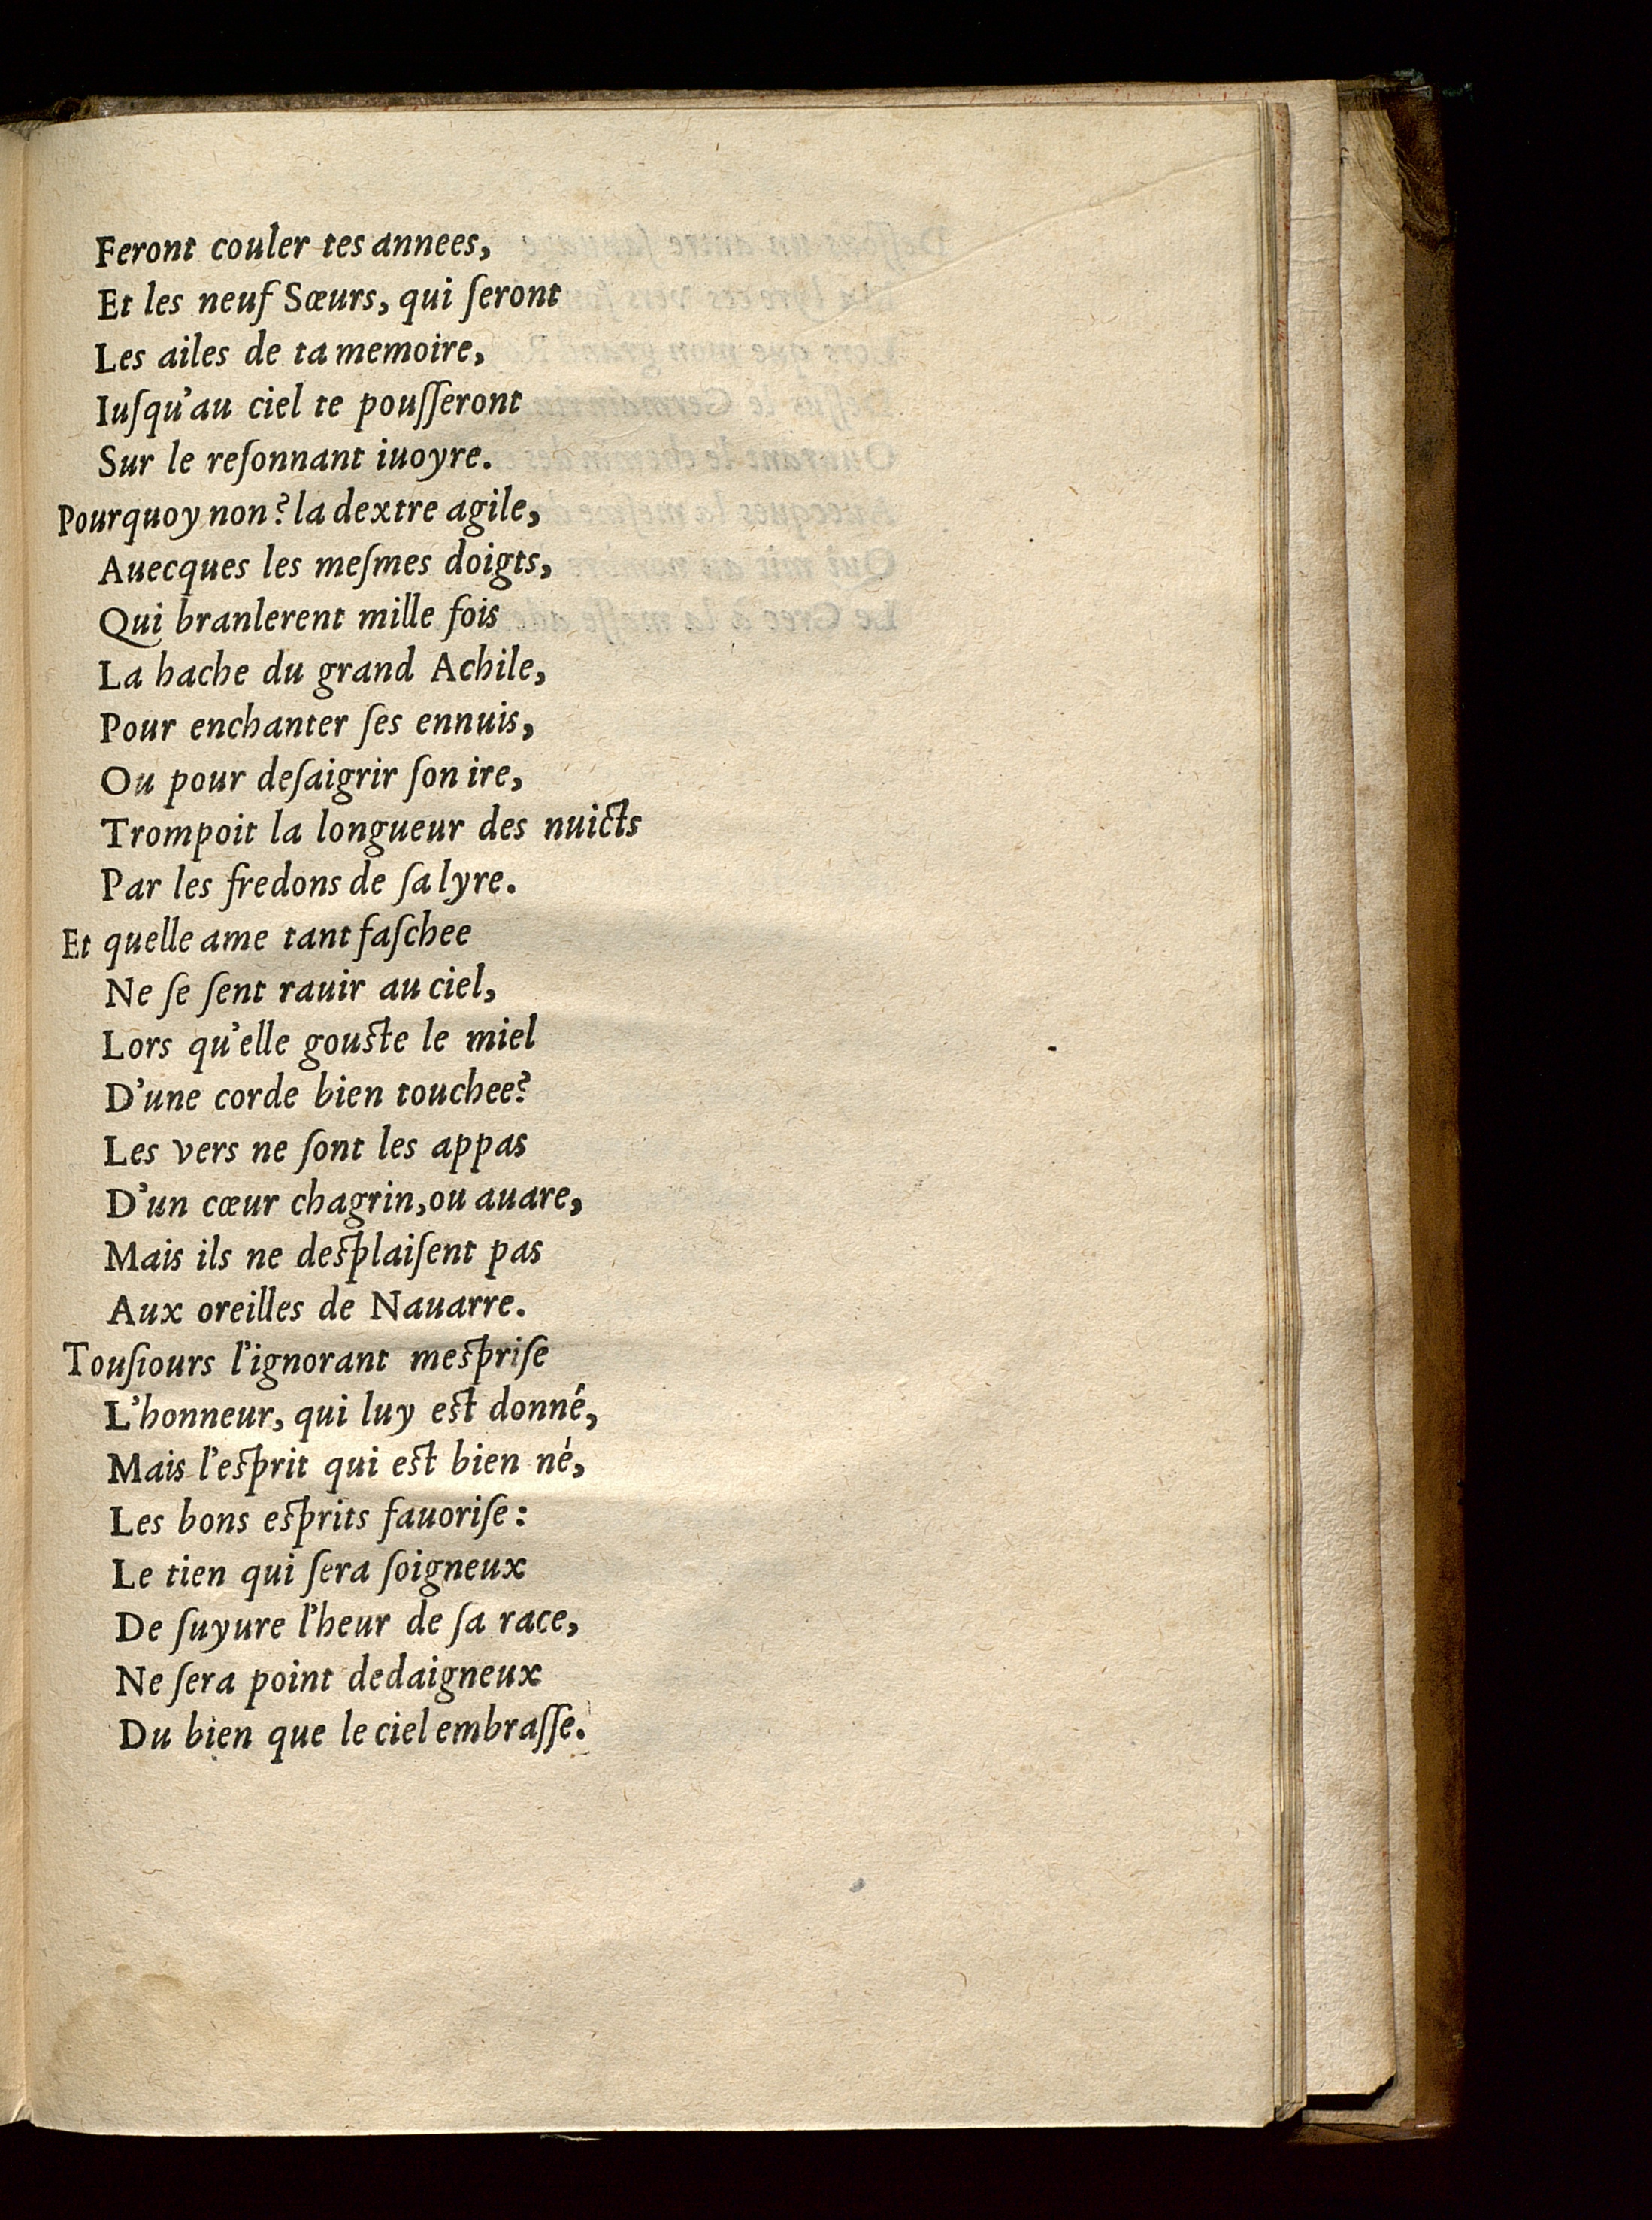 Feront couler tes annees,
Et les neuf Sœurs, qui ſeront
Les ailes de ta memoire,
Iuſqu'au ciel te pouſſeront
Sur le reſonnant iuoyre.
Pourquoy non? la dextre agile,
Auecques les meſmes doigts,
Qui branlerent mille fois
La hache du grand Achile,
Pour enchanter ſes ennuis,
Ou pour deſaigrir ſon ire,
Trompoit la longueur des nuicts
Par les fredons de ſa lyre.
Et quelle ame tant faſchee
Ne ſe ſent rauir au ciel,
Lors qu'elle gouſte le miel
D'une corde bien touchee?
Les vers ne ſont les appas
D'un cœur chagrin, ou auare,
Mais ils ne deſplaiſent pas
Aux oreilles de Nauarre.
Touſiours l'ignorant meſpriſe
L'honneur, qui luy eſt donné,
Mais l'eſprit qui eſt bien né,
Les bons eſprits fauoriſe:
Le tien qui ſera ſoigneux
De ſuyure l'heur de ſa race,
Ne ſera point dedaigneux
Du bien que le ciel embraſſe.